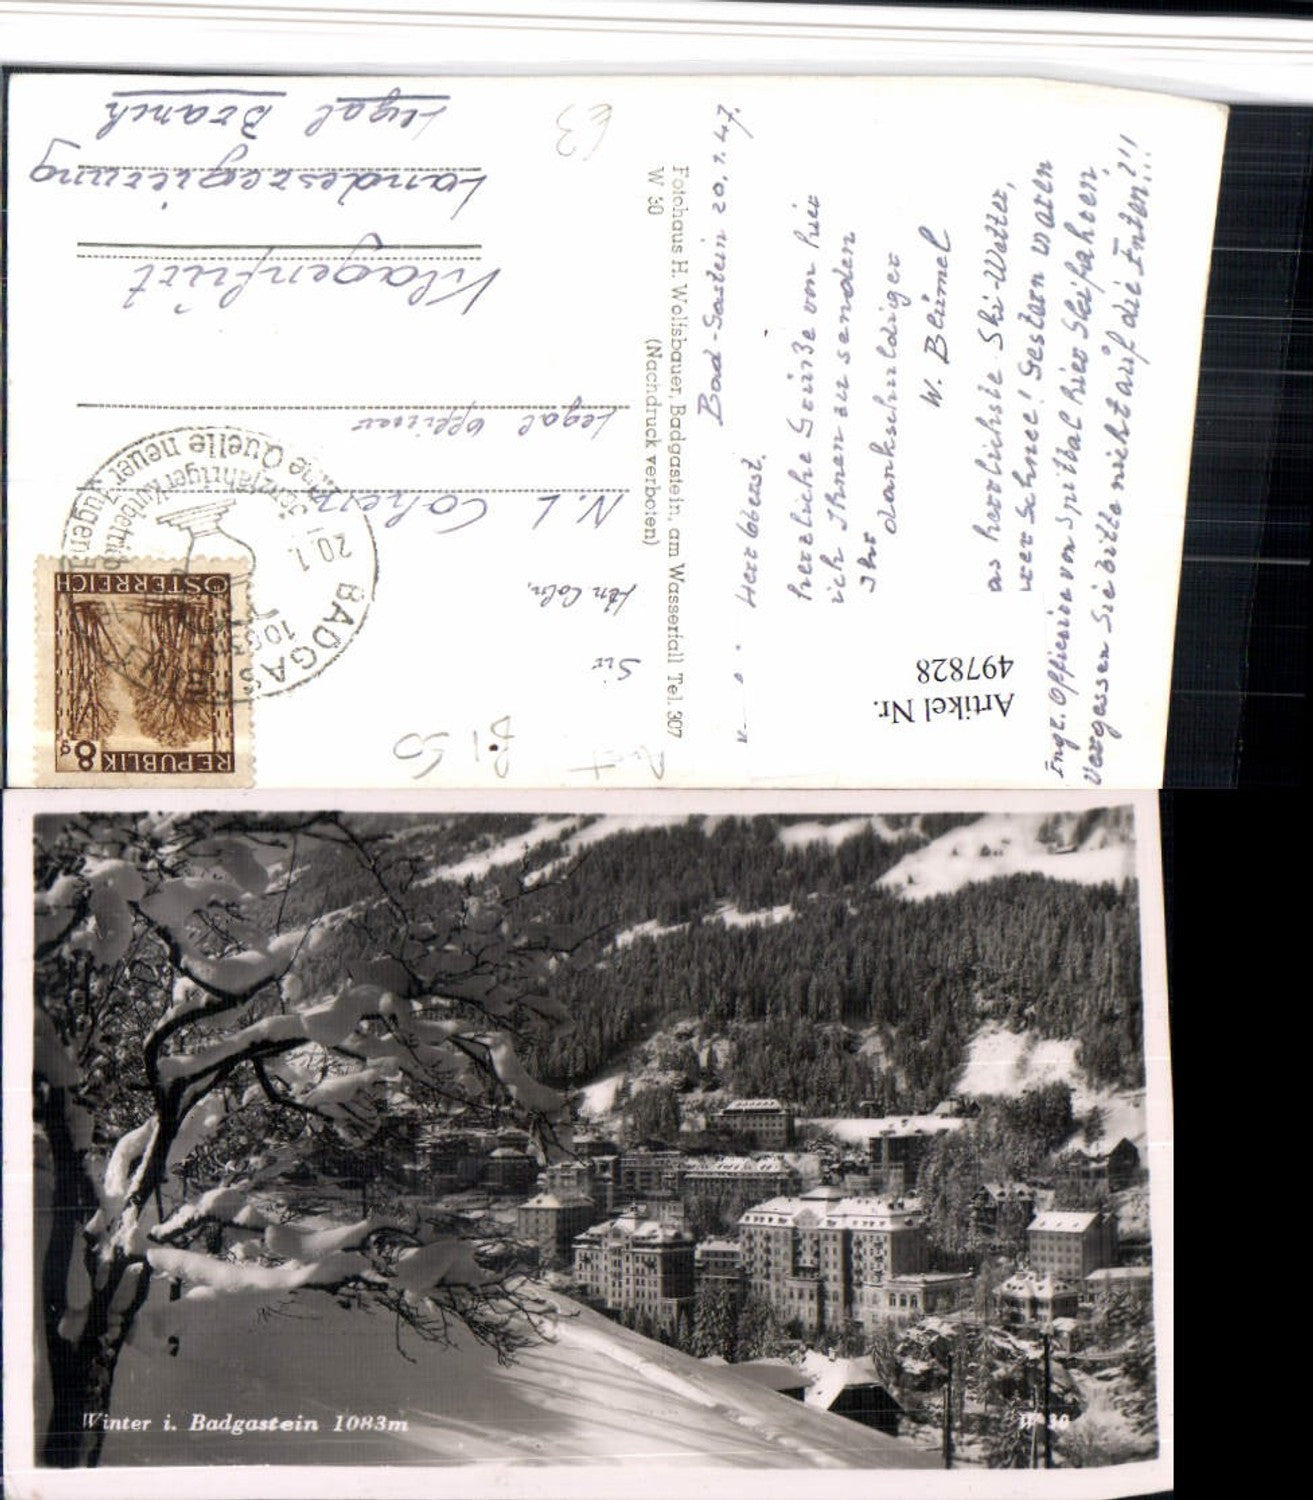 Bad-Gastein 20.1.47.
Herzliche Grüsse von hier
ich Ihnen zu senden
Ihr dankschuldiger
W. Blümel
as herrlichste Ski-Wetter,
Schnee! Gestern waren
Engl. Offiziere von Spittal hier Skifahren,
Vergessen Sie bitte nicht auf die Enten!!!
Fotohaus H. Wolfsbauer, Badgastein, am Wasserfall Tel. 307
W 30 (Nachdruck verboten)
Sir
N. L. Cohen
Legal Officer
Klagenfurt
Landesregierung
Legal Branch
REPUBLIK
8g
ÖSTERREICH
BADGAST
1083
20.1.
jähriger Kurbetrieb
ne Quelle neuer Jugen
Artikel Nr.
497828
Winter i. Badgastein 1083m
W 30